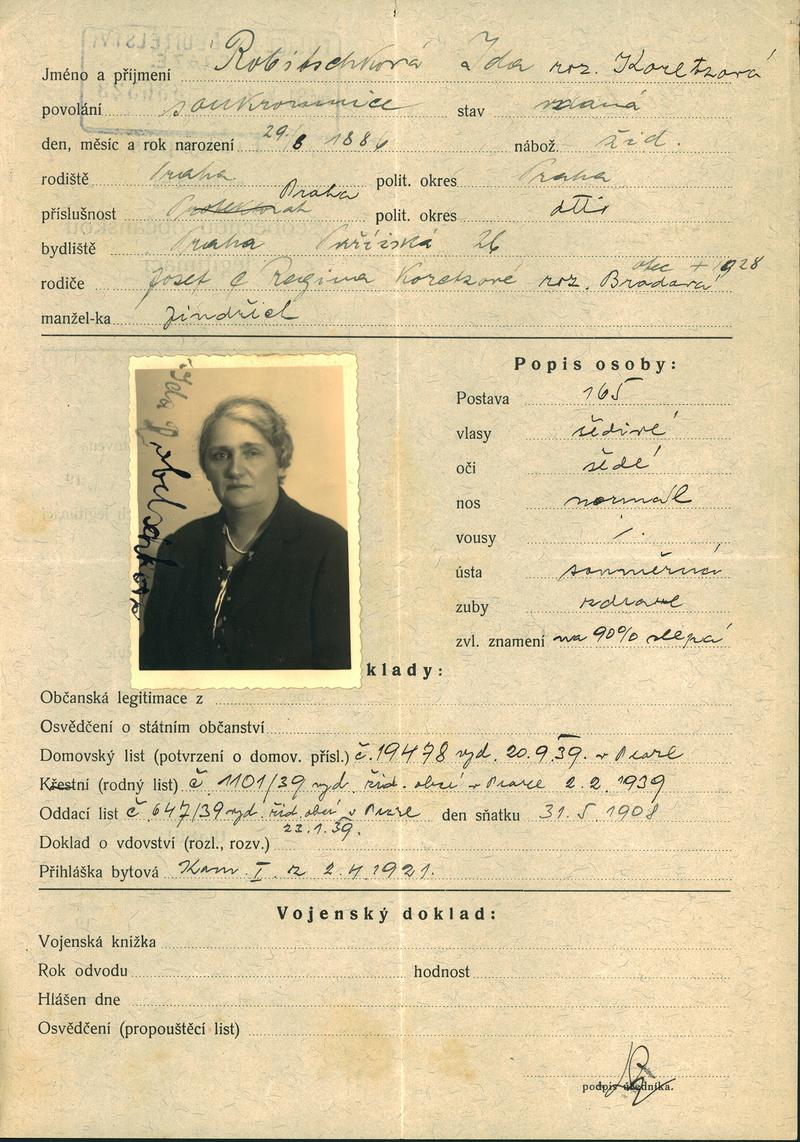 Jméno a příjmení Robitschková Ida roz. Koretzová
povolání soukromnice stav vdaná
den, měsíc a rok narození 29. 8 1886 nábož. žid.
rodiště Praha polit. okres Praha
Praha
příslušnost Protektorat polit. okres dtto
bydliště Praha Pařížská 26
otec + 1928
rodiče Josef a Regina Koretzové roz. Brodová
manžel-ka Jindřich
Popis osoby:
Postava 165
vlasy šedivé
oči šedé
nos normál
vousy /.
ústa souměrná
zuby zdravé
zvl. znamení na 90% slepá
Ida
klady:
Občanská legitimace z
Osvědčení o státním občanství
Domovský list (potvrzení o domov. přísl.) č. 19478 vyd. 20.9.39. v Praze
Křestní (rodný list) č 1101/39 vyd žid. obcí v Praze 2.2.1939
Oddací list č 647/39 vyd. žid. obcí v Praze den sňatku 31.5.1908
22.1.39.
Doklad o vdovství (rozl., rozv.)
Přihláška bytová Kom. I. z 2.4.1921.
Vojenský doklad:
Vojenská knížka
Rok odvodu hodnost
Hlášen dne
Osvědčení (propouštěcí list)
podpis úředníka.